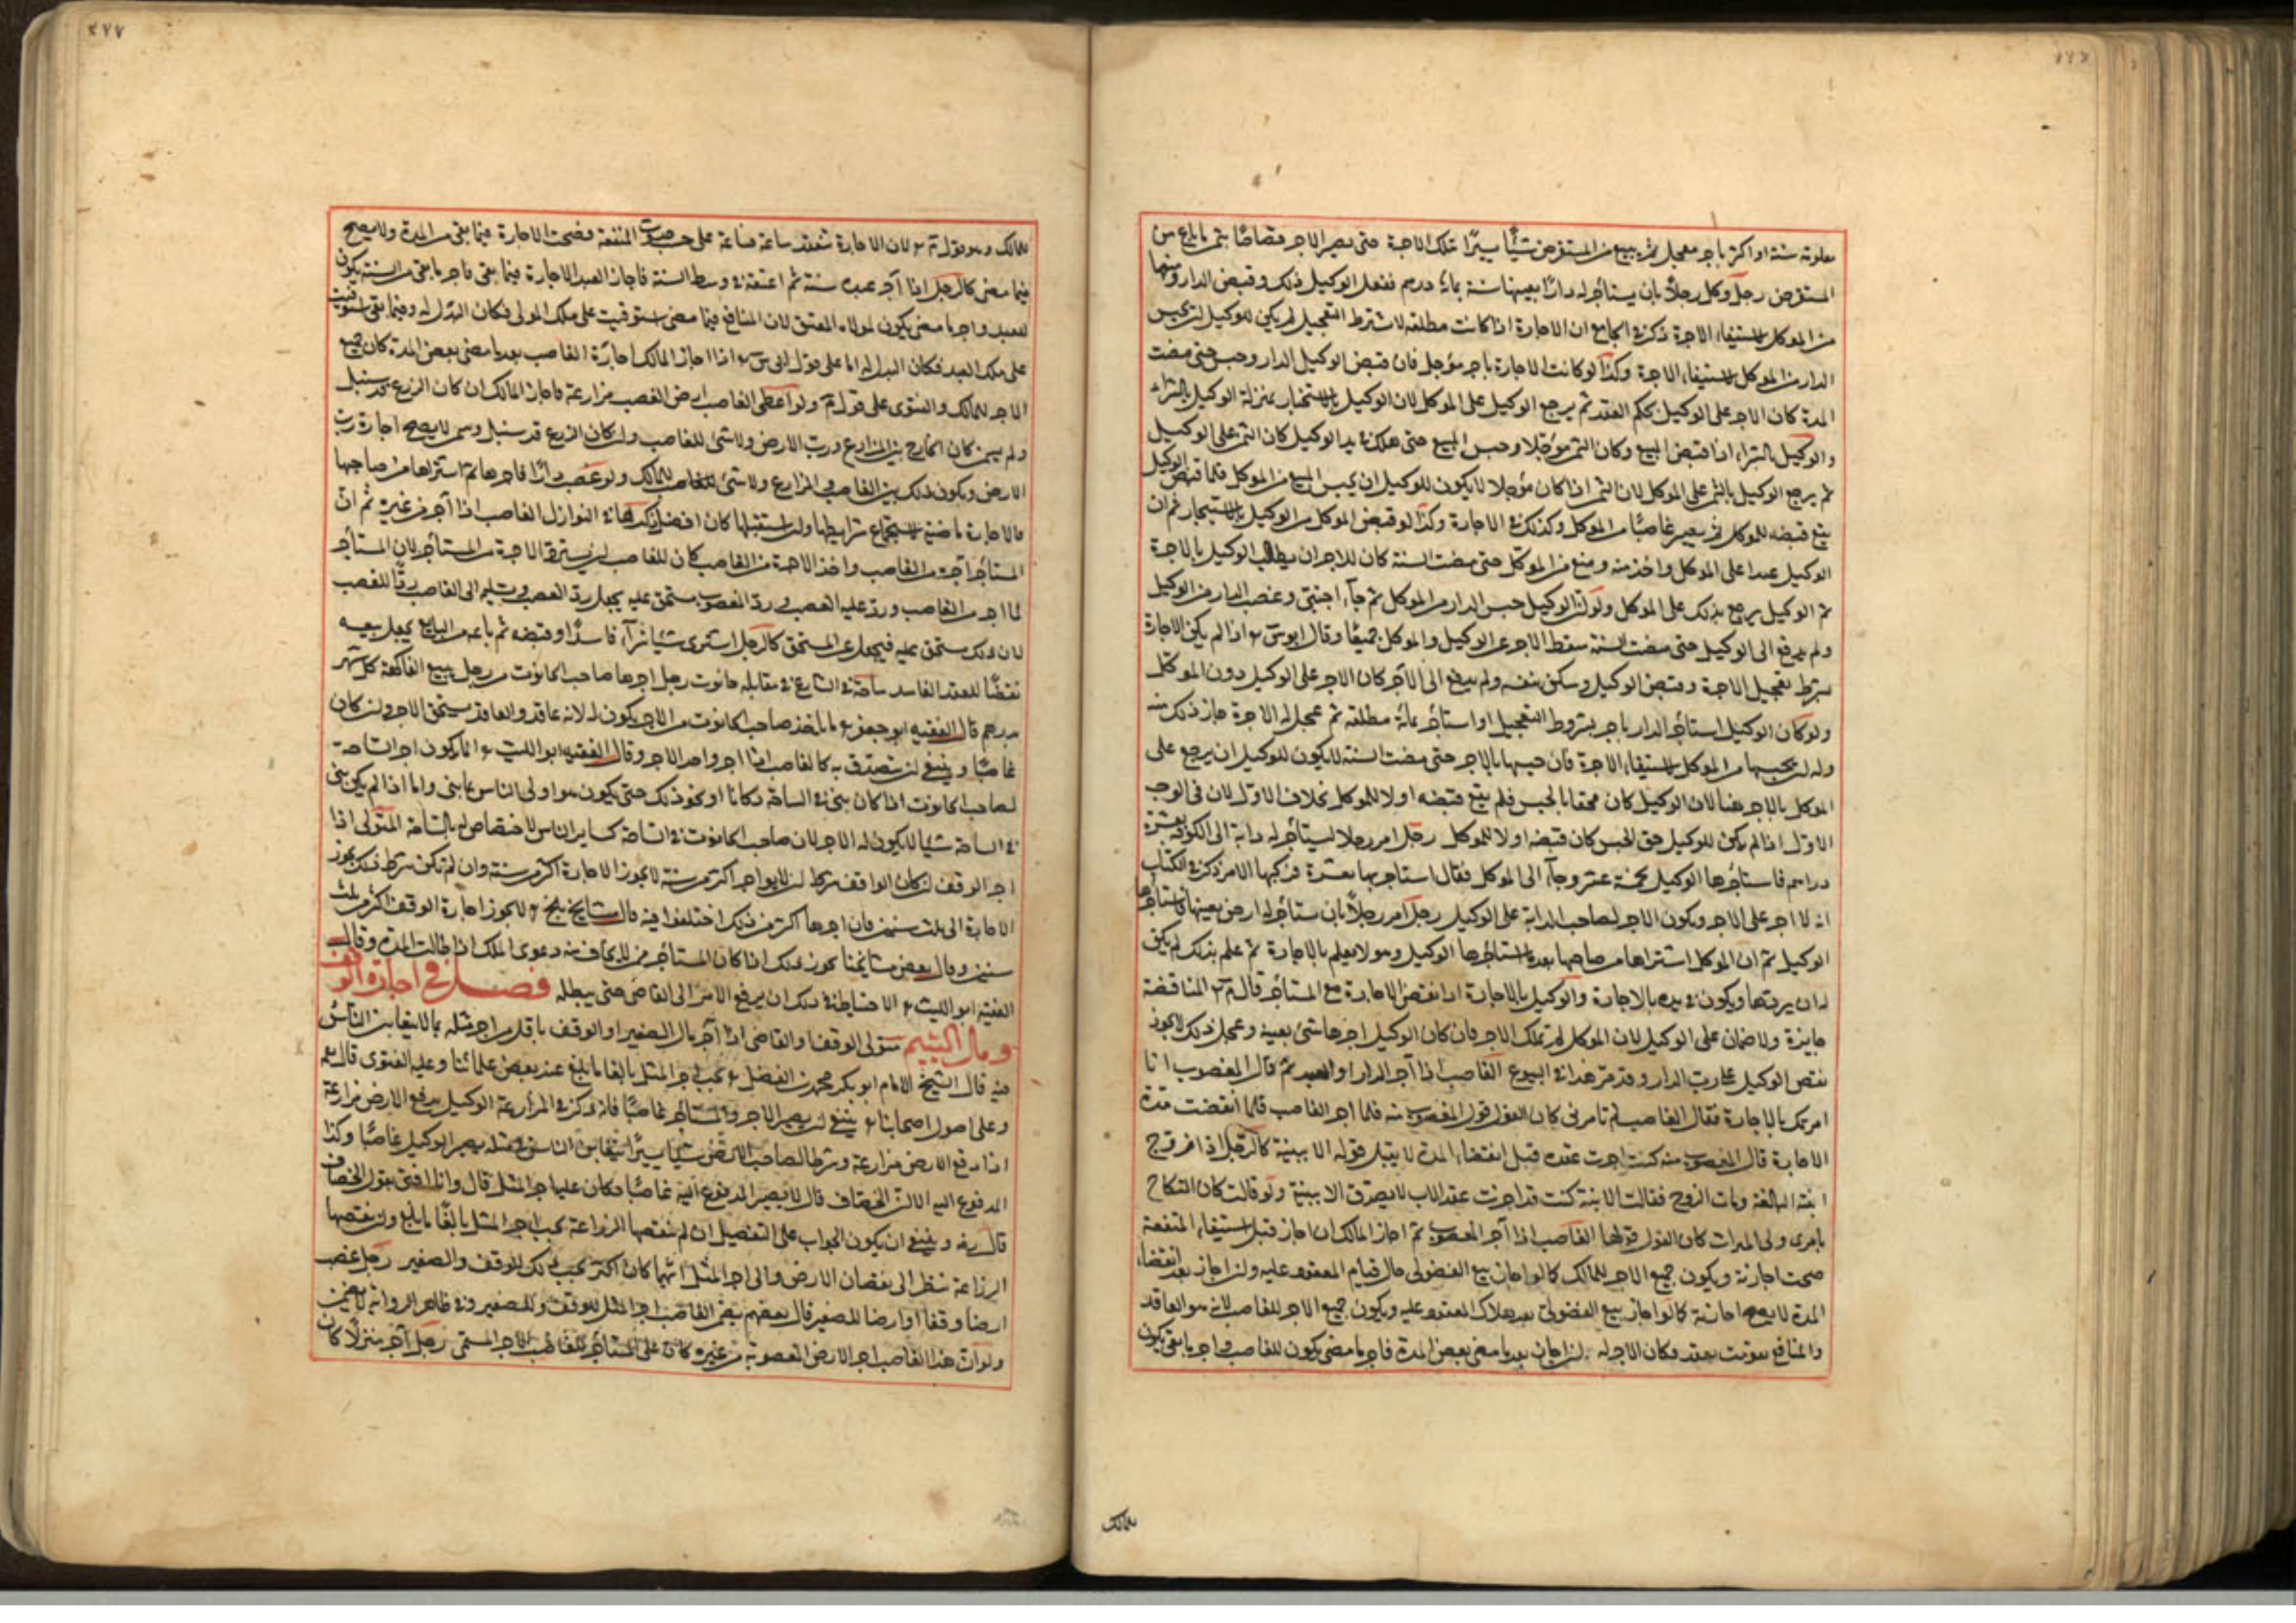 معلومة سنة او اكثر باجر معجل ثم يبيع من المستقرض شيأ يسيرا بتلك الاجرة حتى يصير الاجر قصاصا بثمن ما باع من
المستقرض رجل وكل رجلا بان يستأجر له دارا بعينها سنة بمائة درهم ففعل الوكيل ذلك وقبض الدار ومنعها
من الموكل لاستيفاء الاجرة ذكر في الجامع ان الاجارة اذا كانت مطلقة لا شترط التعجيل لم يكن للوكيل ان يحبس
الدار من الموكل لاستيفاء الاجرة وكذا لو كانت الاجارة باجر مؤجل فان قبض الوكيل الدار وحبس حتى مضت
المدة كان الاجر على الوكيل بحكم العقد ثم يرجع الوكيل على الموكل لان الوكيل بالاستئجار بمنزلة الوكيل بالشراء
والوكيل بالشراء اذا قبض المبيع وكان الثمن مؤجلا وحبس المبيع حتى هلك في يد الوكيل كان الثمن على الوكيل
ثم يرجع الوكيل بالثمن على الموكل لان الثمن اذا كان مؤجلا لا يكون للوكيل ان يحبس المبيع من الموكل فلما قبض الوكيل
يقع قبضه للموكل ثم يصير غاصبا من الموكل وكذلك في الاجارة وكذا لو قبض الموكل من الوكيل بالاستيجار ثم ان
الوكيل عدا على الموكل واخذ منه ومنع من الموكل حتى مضت السنة كان للاجر ان يطالب الوكيل بالاجرة
ثم الوكيل يرجع بذلك على الموكل ولو ان الوكيل حبس الدار من الموكل ثم جاء اجنبي وغصب الدار من الوكيل
ولم يدفع الى الوكيل حتى مضت السنة سقط الاجر عن الوكيل والموكل جميعا وقال ابو س اذا لم يكن الاجارة
بشرط تعجيل الاجرة وقبض الوكيل وسكن بنفسه ولم يدفع الى الآمر كان الاجر على الوكيل دون الموكل
ولو كان الوكيل استأجر الدار باجر بشروط التعجيل او استأجر بمائة مطلقة ثم عجل له الاجرة جاز ذلك منه
وله ان يحبسها من الموكل لاستيفاء الاجرة فان حبسها بالاجر حتى مضت السنة لا يكون للوكيل ان يرجع على
الموكل بالاجر هنا لان الوكيل كان محقا بالحبس فلم يقع قبضه اولا للموكل بخلاف الاول لان في الوجه
الاول اذا لم يكن للوكيل حق الحبس كان قبضه اولا للموكل رجل امر رجلا ليستأجر له دابة الى الكوفة بعشرة
دراهم فاستأجرها الوكيل بخمسة عشر وجاء الى الموكل فقال استاجرتها بعشرة فركبها الامر ذكر في الكتاب
انه لا اجر على الآمر ويكون الاجر لصاحب الدابة على الوكيل رجل امر رجلا بان يستأجر له ارض بعينها فاستأجرها
الوكيل ثم ان الموكل اشتراها من صاحبها بعد ما استأجرها الوكيل وهو لا يعلم بالاجارة ثم علم بذلك لم يكن
له ان يردها ويكون في يده بالاجارة والوكيل بالاجارة اذا نقض الاجارة مع المستأجر قال م المناقضة
جايزة ولا ضمان على الوكيل لان الموكل لم يملك الاجر فان كان الوكيل اجرها بشئ بعينه وعجل ذلك لا يجوز
نقض الوكيل على رب الدار وقد مر هذا في البيوع الغاصب اذا آجر الدار او العبد ثم قال المغصوب انا
امرتك بالاجارة فقال الغاصب لم تامرني كان القول قول المغصوب منه فلما اجر الغاصب فلما انقضت مدة
الاجارة قال المغصوب منه كنت اجزت عقده قبل انقضاء المدة لا يقبل قوله الا ببينة كالرجل اذا زوج
ابنته البالغة ومات الزوج فقالت الابنة كنت قد اجزت عقد الاب لا يصدق الا ببينة ولو قالت كان النكاح
بامرى ولى الميراث كان القول قولها الغاصب اذا آجر المغصوب ثم اجاز المالك ان اجاز قبل استيفاء المنفعة
صحت اجازته ويكون جميع الاجر للمالك كما لو اجاز بيع الفضولى حال قيام المعقود عليه وان اجاز بعد انقضاء
المدة لا يصح اجازته كما لو اجاز بيع الفضولى بعد هلاك المعقود عليه ويكون جميع الاجر للغاصب لانه هو العاقد
والمنافع تقومت بعقده فكان الاجر له وان اجاز بعد ما مضى بعض المدة فاجر ما مضى يكون للغاصب واجر ما بقى يكون
للمالك
٢٧٧
للمالك وهو قول م لان الاجارة تنعقد ساعة فساعة على حسب حدوث المنفعة فصحت الاجارة فيما بقى من المدة ولا يصح
فيما مضى كالرجل اذا آجر عبده سنة ثم اعتقه في وسط السنة فاجاز العبد الاجارة فيما بقى فاجر ما بقى من السنة يكون
للعبد واجر ما مضى يكون لمولاه المعتق لان المنافع فيما مضى استوفيت على ملك المولى فكان البدل له وفيما بقى استوفيت
على ملك العبد فكان البدل له اما على قول ابي س اذا اجاز المالك اجارة الغاصب بعد ما مضى بعض المدة كان جميع
الاجر للمالك والفتوى على قول م ولو اعطى الغاصب ارض الغصب مزارعة فاجاز المالك ان كان الزرع قد سنبل
ولم يسمن كان الخارج بين المزارع ورب الارض ولا شئ للغاصب وان كان الزرع قد سنبل وسمن لا يصح اجازة رب
الارض ويكون ذلك بين الغاصب والمزارع ولا شئ للمالك ولو غصب دارا فاجرها ثم اشتراها من صاحبها
فالاجارة ماضية لاستجماع شرايطها وان استقبلها كان افضل في النوازل الغاصب اذا آجر من غيره ثم ان
المستأجر آجر من الغاصب واخذ الاجرة من الغاصب كان للغاصب ان يسترد الاجرة من المستأجر لان المستأجر
لما اجر من الغاصب ورد عليه الغصب ورد المغصوب مستحق عليه يجعل رد الغصب وتسليمه الى الغاصب ردا للغصب
لان ذلك مستحق عليه فيجعل عن المستحق كالرجل اشترى شيئا شراء فاسدا وقبضه ثم باعه من البايع يجعل بيعه
نقضا للعقد الفاسد ساحة في الشارع في مقابلة حانوت رجل اجرها صاحب الحانوت من رجل يبيع الفاكهة كل شهر
بدرهم قال الفقيه ابو جعفر ما ياخذ صاحب الحانوت من الاجر يكون له لانه عاقد والعاقد يستحق الاجر وان كان
غاصبا وينبغي ان يتصدق به كالغاصب اذا اجر واخذ الاجر وقال الفقيه ابو الليث انما يكون اجر الساحة
لصاحب الحانوت اذا كان بنى في الساحة دكانا او نحو ذلك حتى يكون هو اولى الناس بما بنى واما اذا لم يكن بنى
في الساحة شيئا لا يكون له الاجر لان صاحب الحانوت في الساحة كساير الناس لا اختصاص له بالساحة المتولى اذا
اجر الوقف ان كان الواقف شرط ان لا يواجر اكثر من سنة لا يجوز الاجارة اكثر من سنة وان لم يكن شرط ذلك يجوز
الاجارة الى ثلث سنين فان اجرها اكثر من ذلك اختلفوا فيه قال مشايخ بلخ لا يجوز اجارة الوقف اكثر من ثلث
سنين وقال بعض مشايخنا يجوز ذلك اذا كان المستأجر ممن لا يخاف منه دعوى الملك اذا طالت المدة وقال
الفقيه ابو الليث الاحتياط في ذلك ان يرفع الامر الى القاضي حتى يبطله فصل في اجارة الوقف
ومال اليتيم متولى الوقف والقاضى اذا آجر مال الصغير او الوقف باقل من اجر مثله بما لا يتغابن الناس
فيه قال الشيخ الامام ابو بكر محمد بن الفضل يجب اجر المثل بالغا ما بلغ عند بعض علمائنا وعليه الفتوى قال
وعلى اصول اصحابنا ينبغي ان يصير الاجر والمستأجر غاصبا فانه ذكر في المزارعة الوكيل بدفع الارض مزارعة
اذا دفع الارض مزارعة وشرط لصاحب الارض شيأ يسيرا لا يتغابن الناس في مثله يصير الوكيل غاصبا وكذا
المدفوع اليه الا ان الخصاف قال لا يصير المدفوع اليه غاصبا وكان عليه اجر المثل قال وانا افتي بقول الخصاف
قال رض وينبغي ان يكون الجواب على التفصيل ان لم ينقصها الزراعة يجب اجر المثل بالغا ما بلغ وان نقصها
الزراعة ينظر الى نقصان الارض والى اجر المثل ايهما كان اكثر يجب ذلك للوقف والصغير رجل غصب
ارضا وقفا او ارضا للصغير قال بعضهم يضمن الغاصب اجر المثل للوقف وللصغير وفي ظاهر الرواية لا يضمن
ولو ان هذا الغاصب اجر الارض المغصوبة من غيره كان على المستأجر للغاصب الاجر المسمى رجل آجر منزلا كان